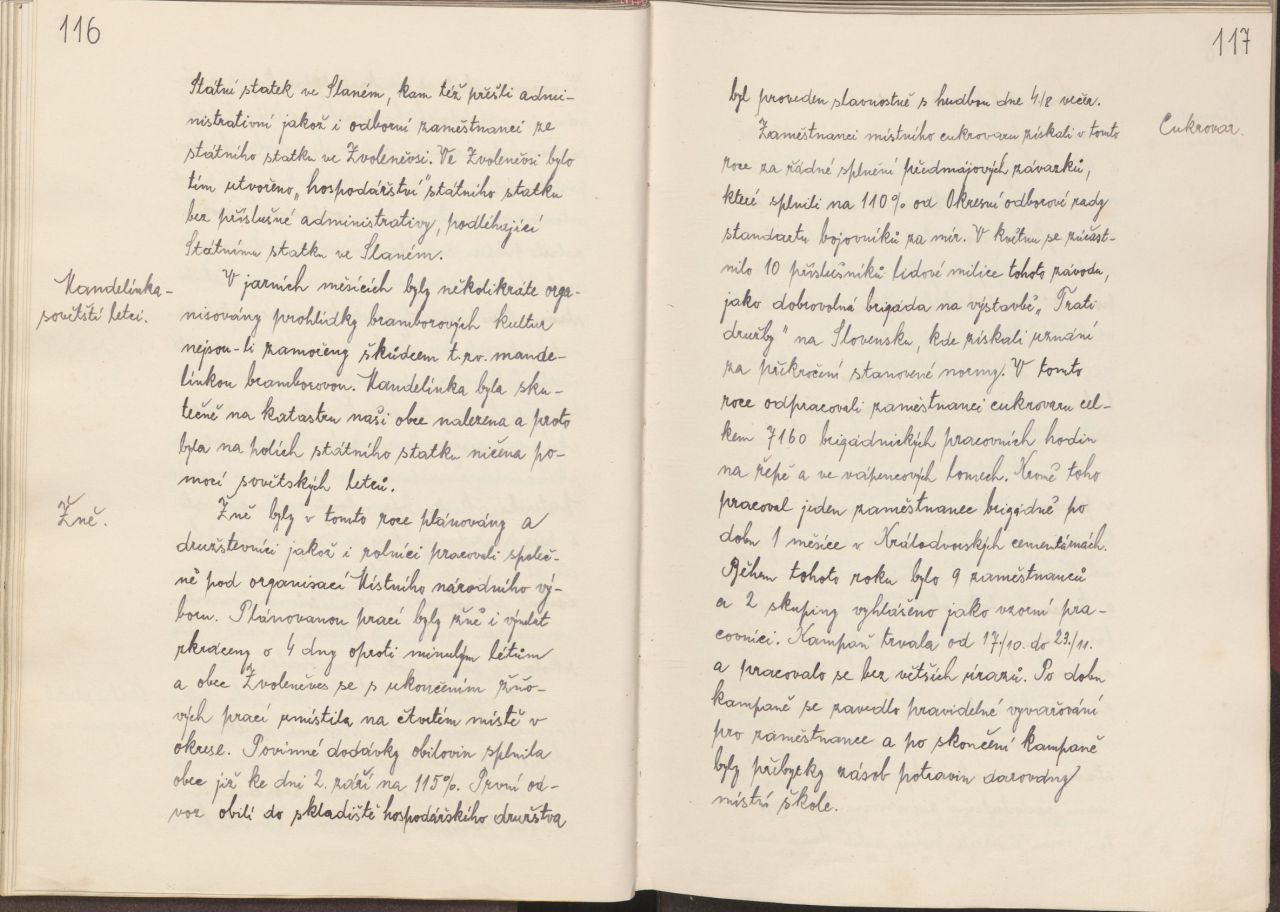 116
Státní statek ve Slaném, kam též přešli admi-
nistrativní jakož i odborní zaměstnanci ze
státního statku ve Zvoleněvsi. Ve Zvoleněvsi bylo
tím utvořeno „hospodářství" státního statku
bez příslušné administrativy, podléhající
Státnímu statku ve Slaném.
Mandelinka-
sovětští letci.
V jarních měsících byly několikráte orga-
nisovány prohlídky bramborových kultur
nejsou-li zamořeny škůdcem t.zv. mande-
linkou bramborovou. Mandelinka byla sku-
tečně na katastru naší obce nalezena a proto
byla na polích státního statku ničena po-
mocí sovětských letců.
Žně.
Žně byly v tomto roce plánovány a
družstevníci jakož i rolníci pracovali společ-
ně pod organisací Místního národního vý-
boru. Plánovanou prací byly žně i výmlat
zkráceny o 4 dny oproti minulým létům
a obec Zvoleněves se s ukončením žňo-
vých prací umístila na čtvrtém místě v
okrese. Povinné dodávky obilovin splnila
obec již ke dni 2. září na 115%. První od-
voz obilí do skladiště hospodářského družstva
117
byl proveden slavnostně s hudbou dne 4/8 večer.
Cukrovar.
Zaměstnanci místního cukrovaru získali v tomto
roce za řádné splnění předmájových závazků,
které splnili na 110% od Okresní odborové rady
standartu bojovníků za mír. V květnu se zúčast-
nilo 10 příslušníků lidové milice tohoto závodu,
jako dobrovolná brigáda na výstavbě „Trati
družby" na Slovensku, kde získali uznání
za překročení stanovené normy. V tomto
roce odpracovali zaměstnanci cukrovaru cel-
kem 7160 brigádnických pracovních hodin
na řepě a ve vápencových lomech. Kromě toho
pracoval jeden zaměstnanec brigádně po
dobu 1 měsíce v Královdvorských cementárnách.
Během tohoto roku bylo 9 zaměstnanců
a 2 skupiny vyhlášeno jako vzorní pra-
covníci. Kampaň trvala od 17./10. do 23./11.
a pracovalo se bez větších úrazů. Po dobu
kampaně se zavedlo pravidelné vyvařování
pro zaměstnance a po skončení kampaně
byly přebytky zásob potravin darovány
místní škole.